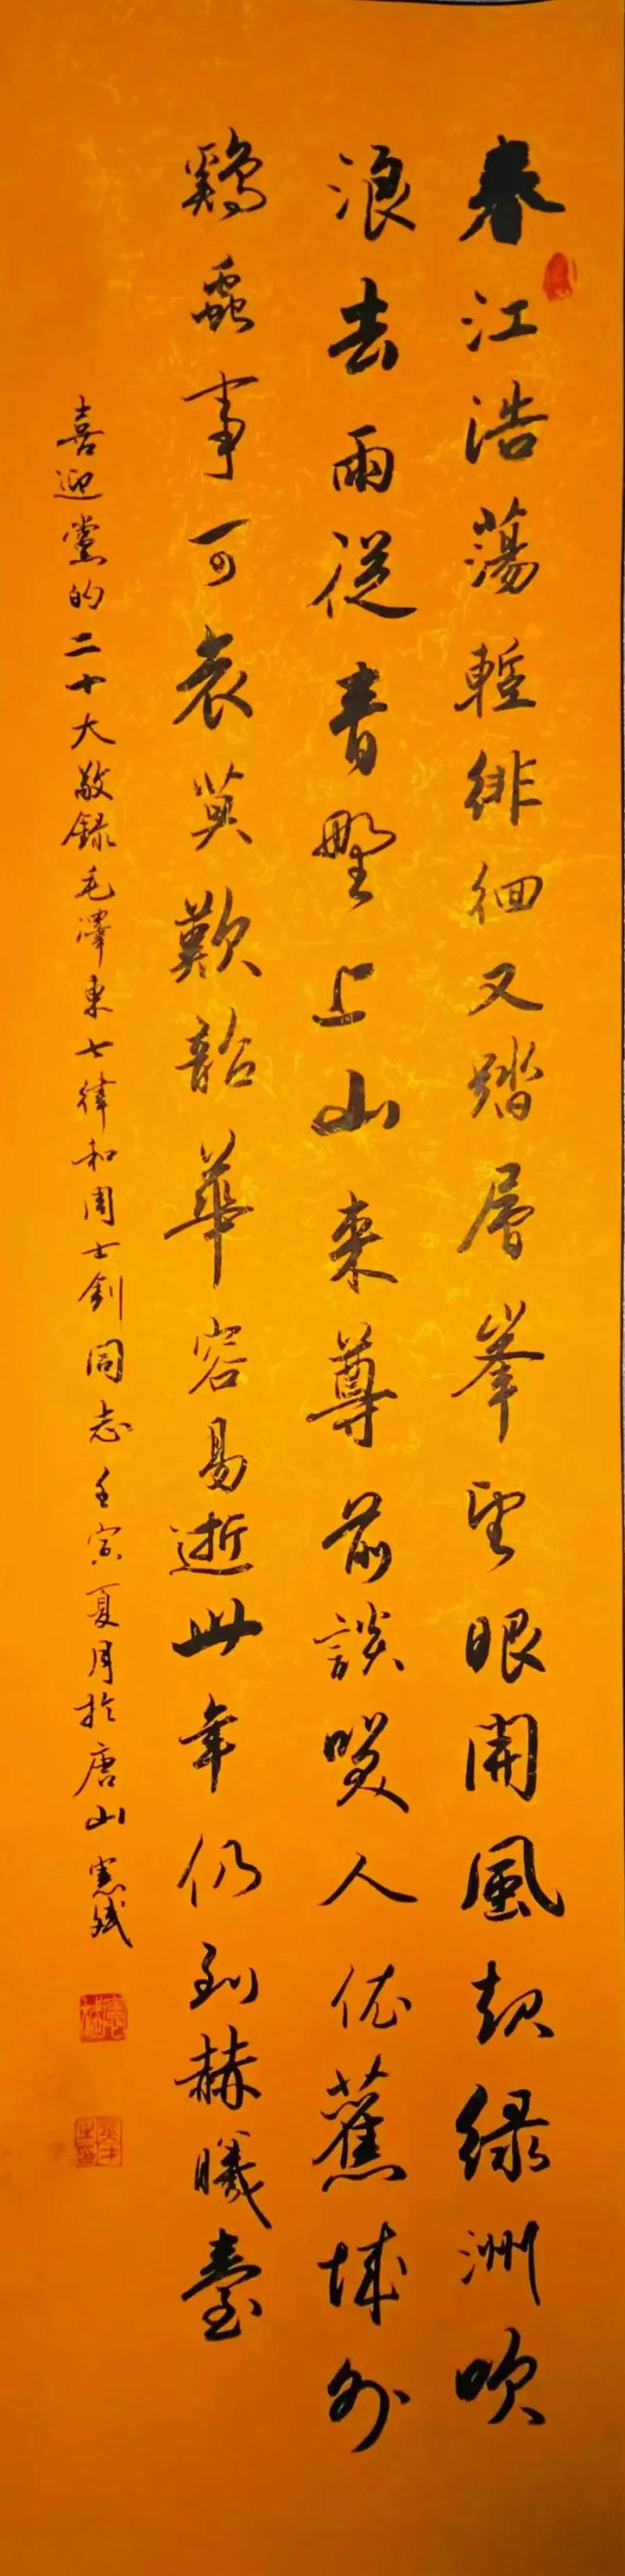 春江浩蕩暫徘徊又踏層峯望眼開風起綠洲吹
浪去雨從青野上山來尊前談笑人依舊域外
鷄蟲事可哀莫歎韶華容易逝卅年仍到赫曦臺
喜迎黨的二十大敬錄毛澤東七律和周士釗同志壬寅夏月於唐山憲斌